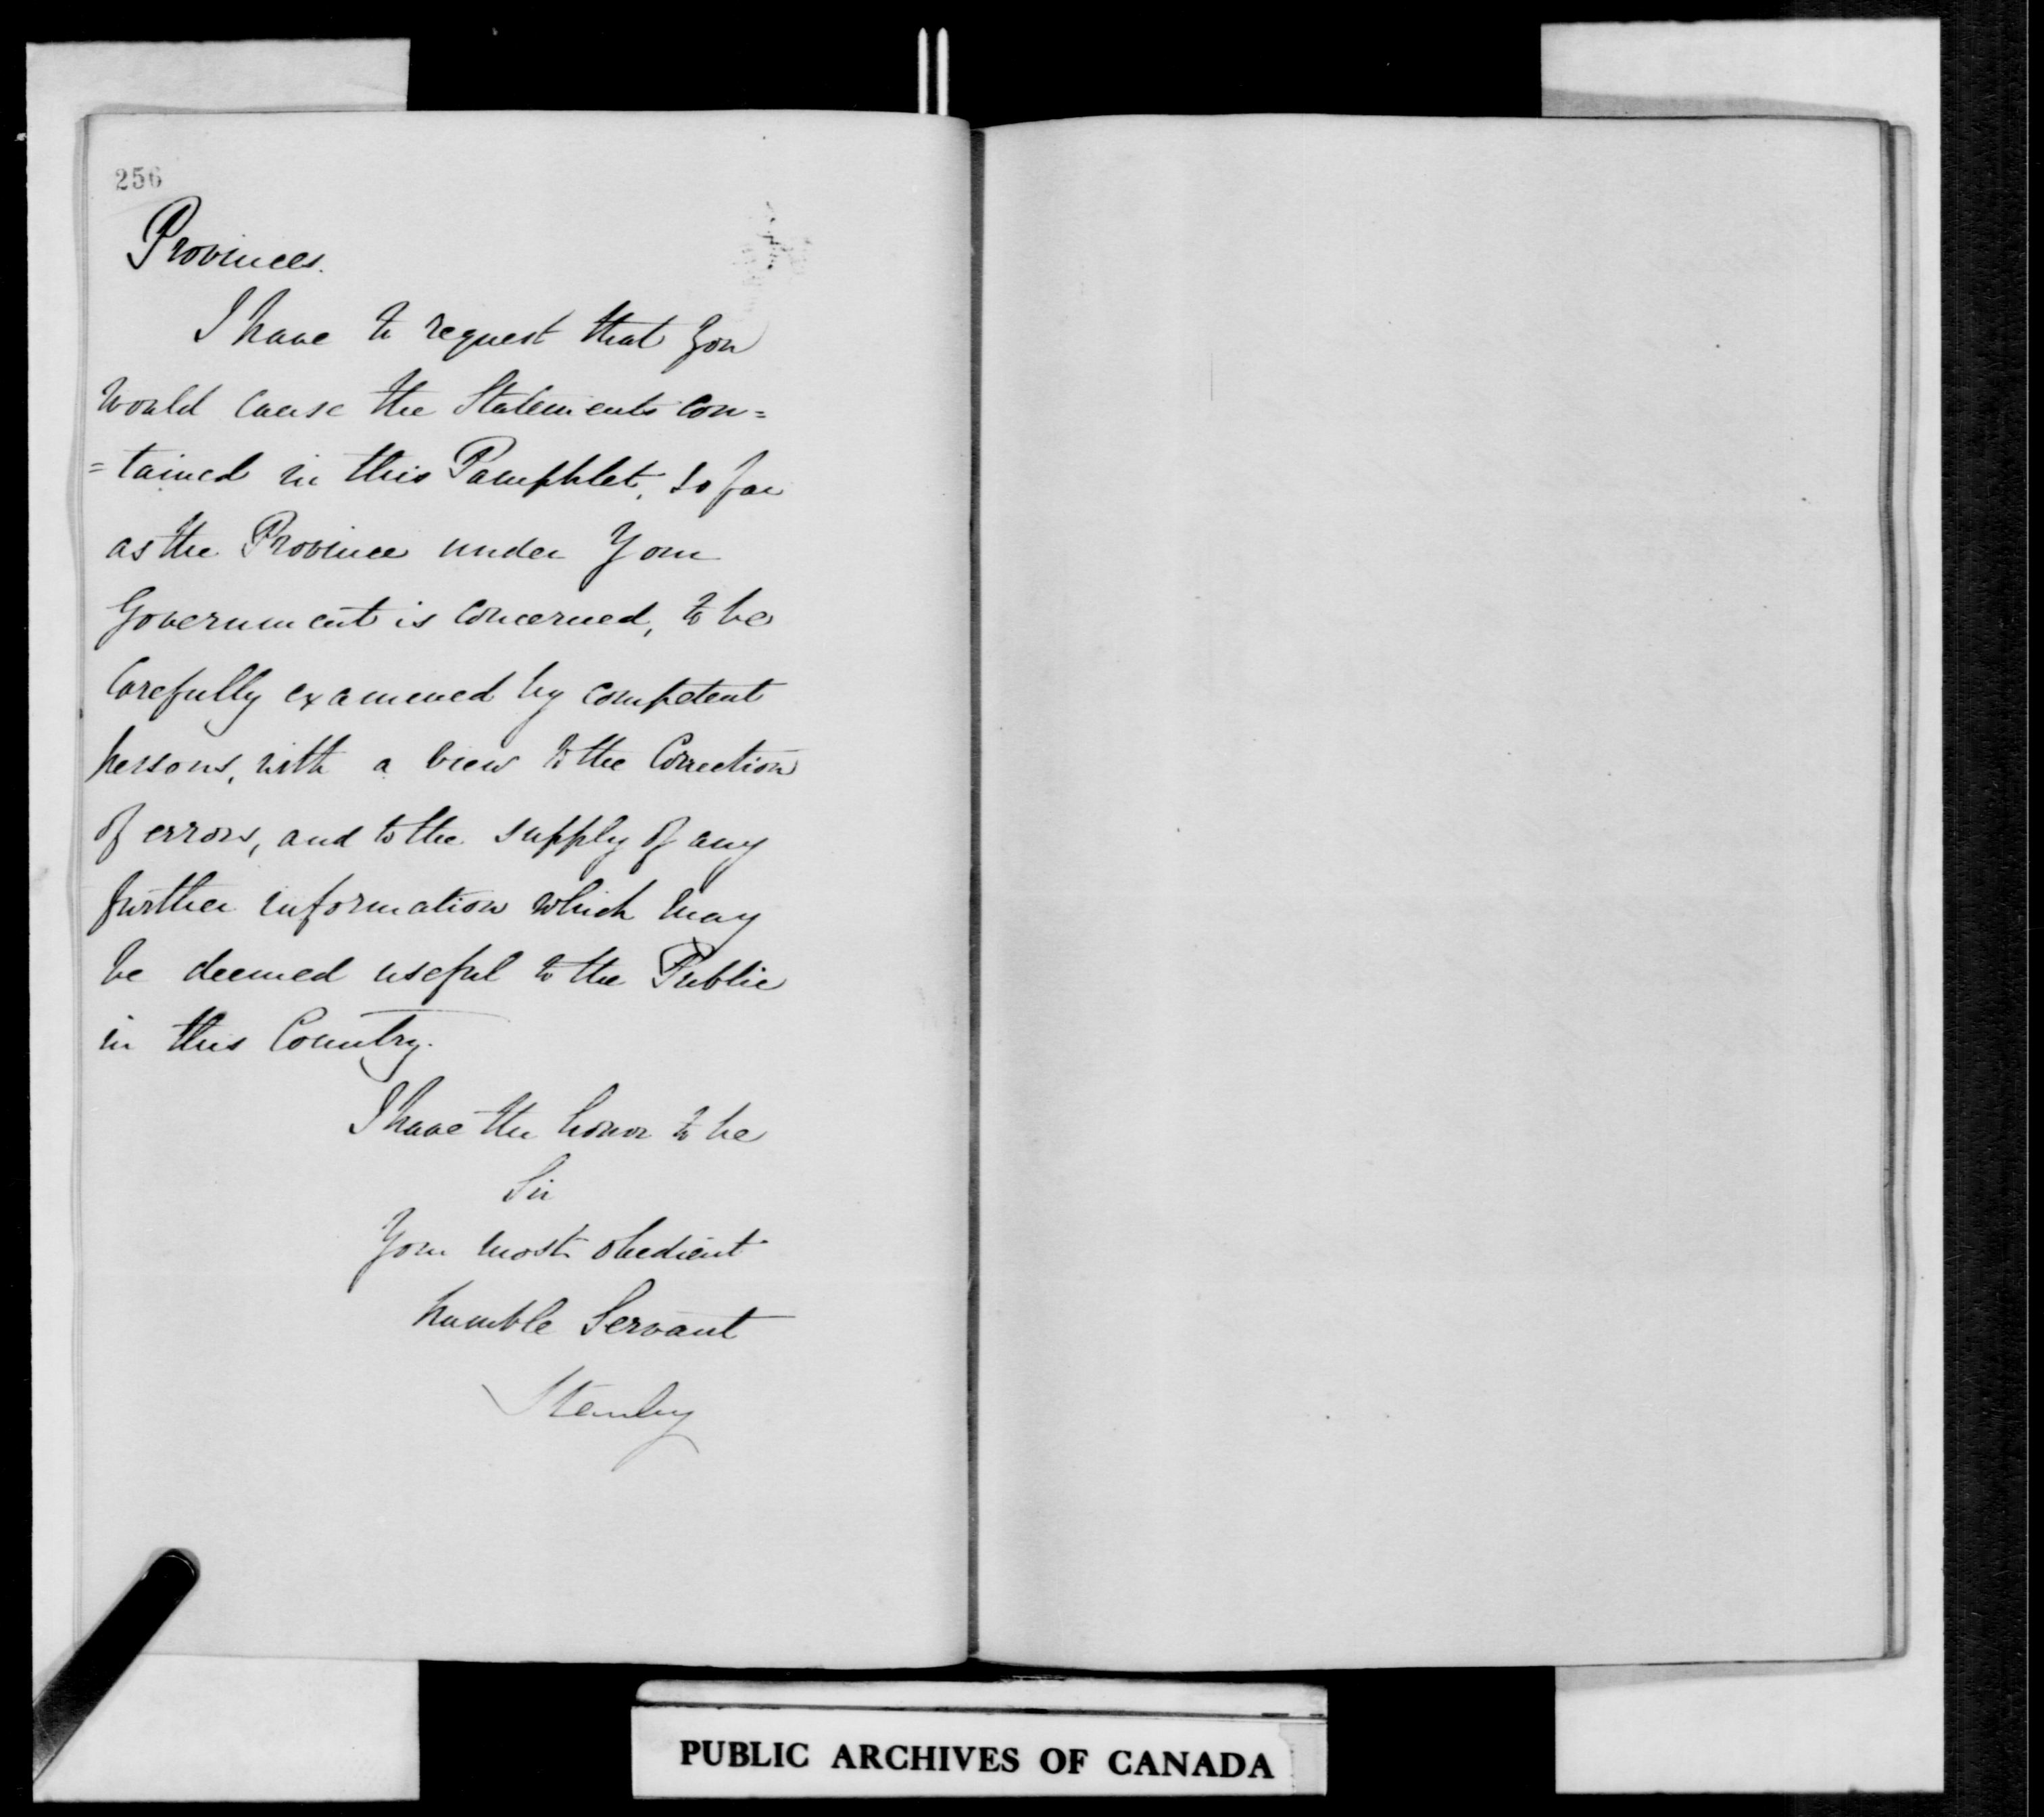 256
Provinces.
I have to request that you
would cause the Statements con=
=tained in this Pamphlet, so far
as the Province under Your
Government is concerned, to be
carefully examined by competent
persons, with a view to the Correction
of errors, and to the supply of any
further information which may
be deemed useful to the Public
in this Country.
I have the honor to be
Sir
Your most obedient
humble Servant
Stanley
PUBLIC ARCHIVES OF CANADA